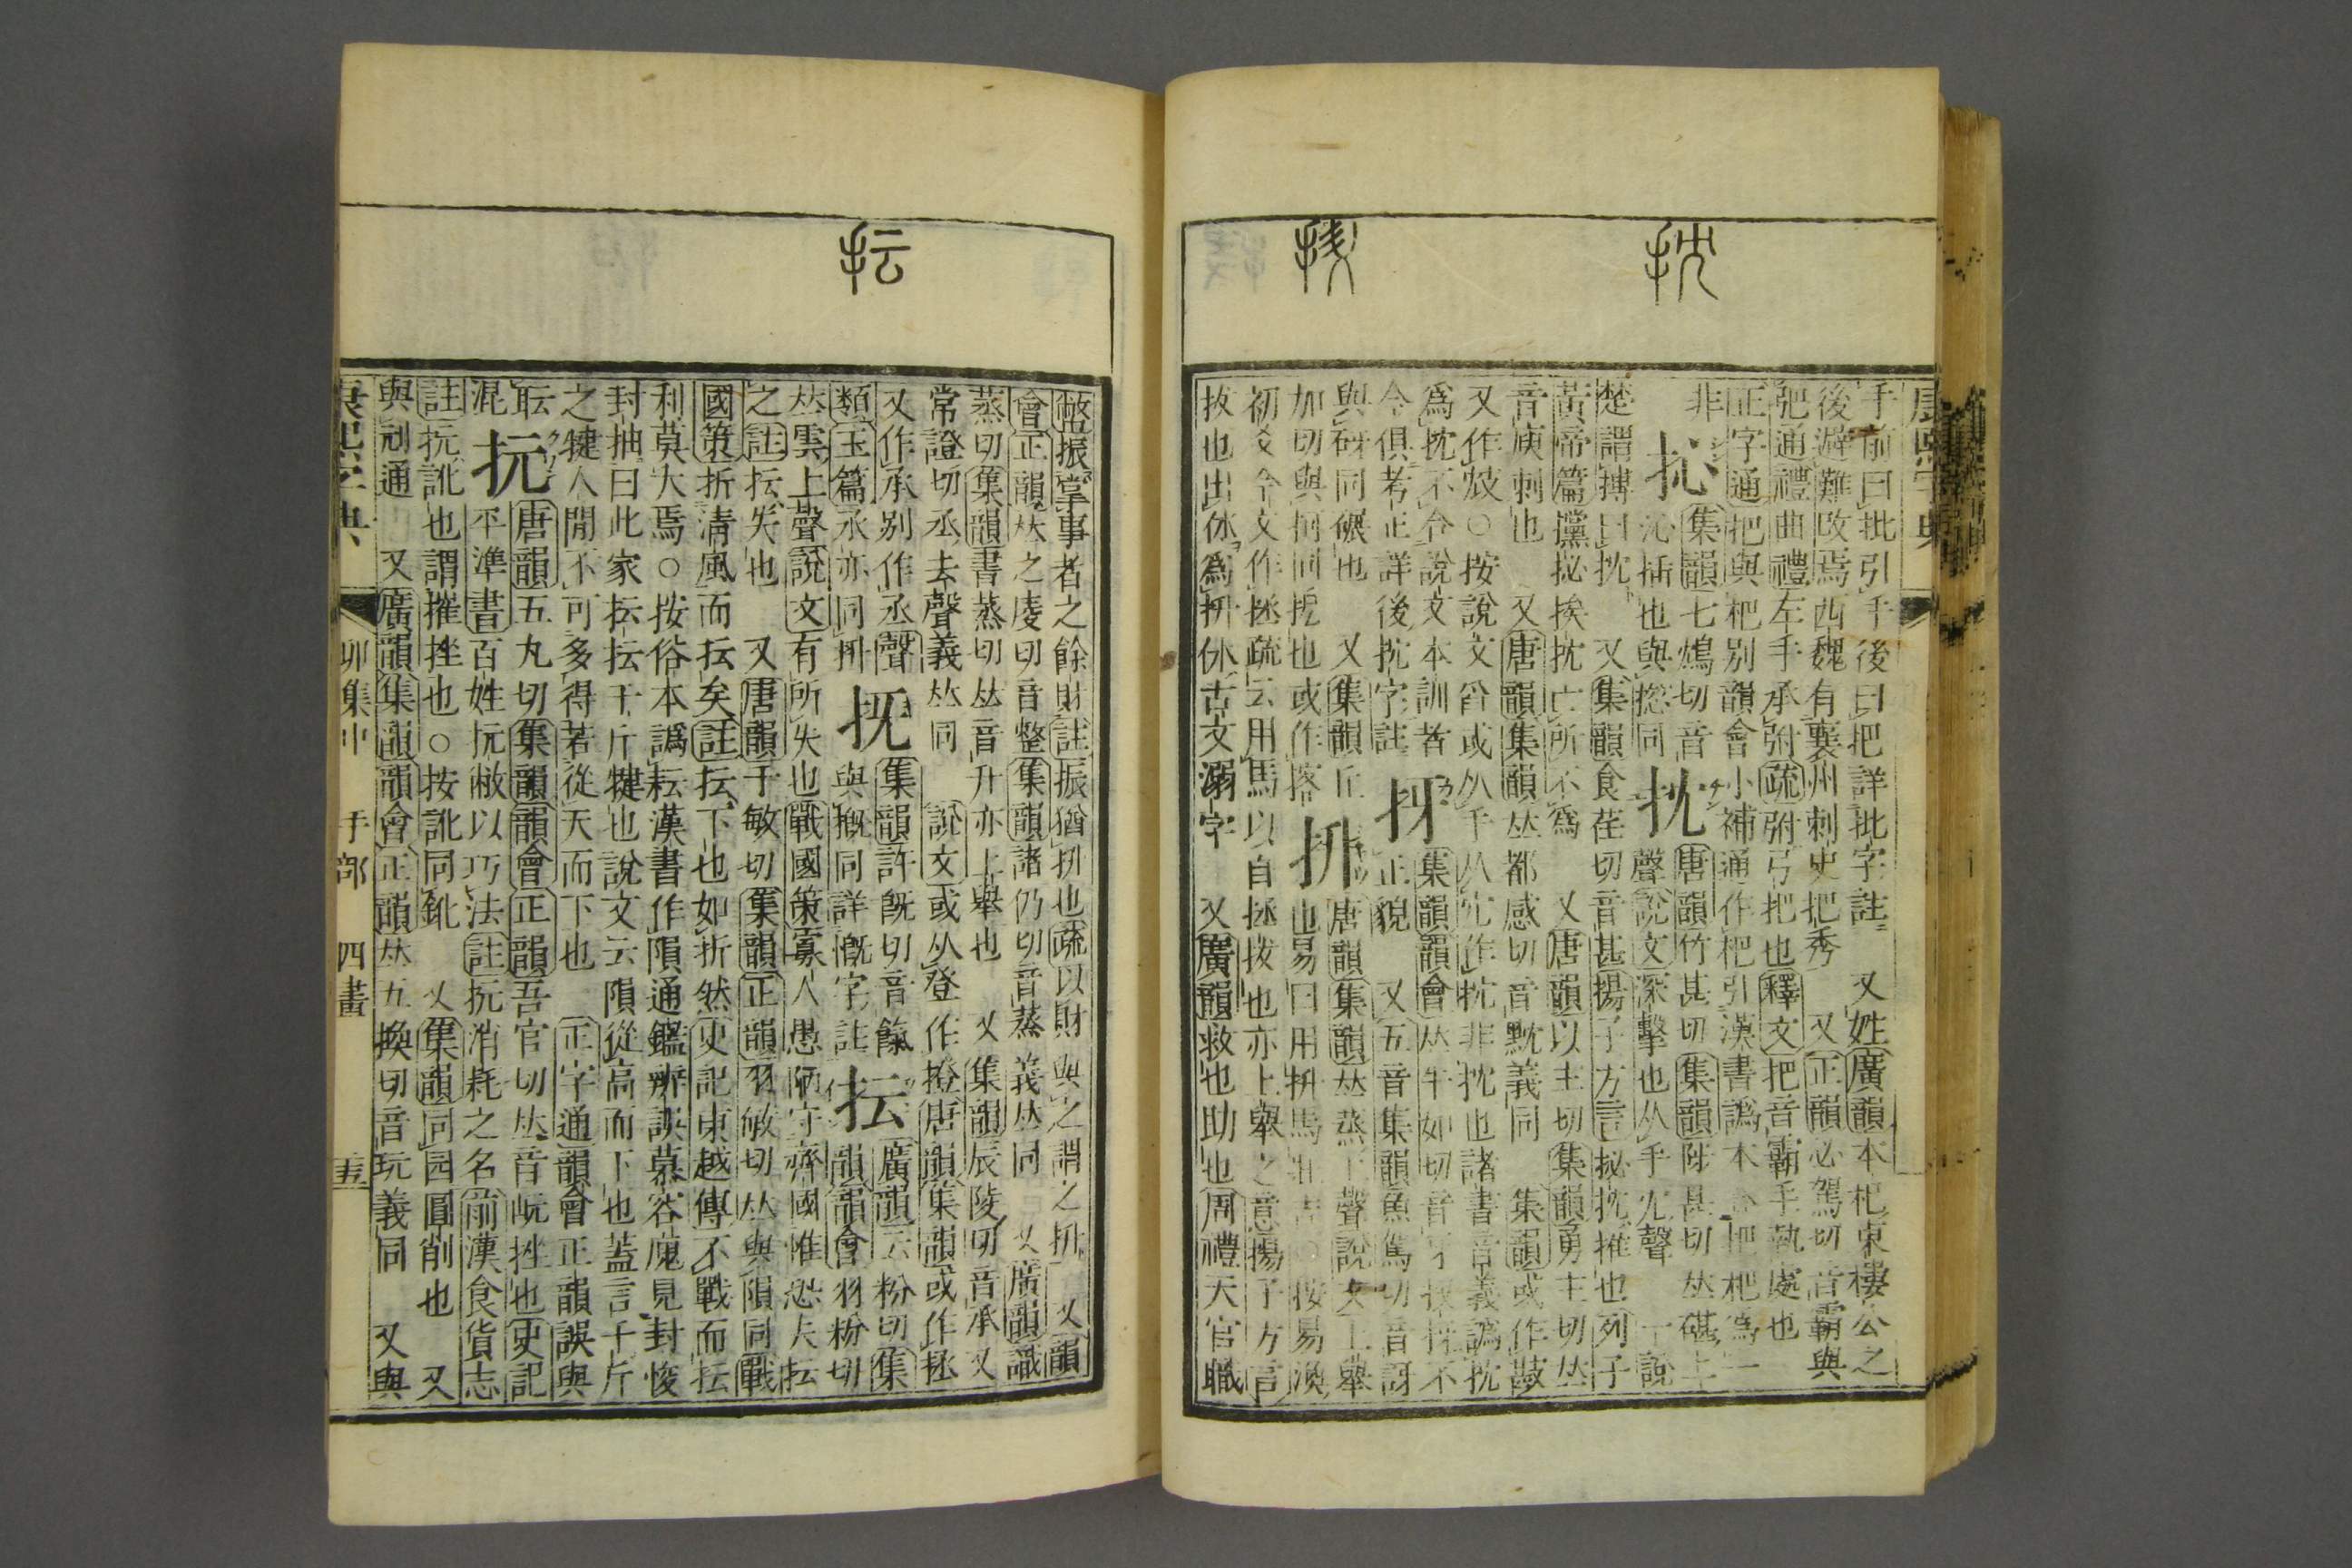 抌
手前曰批引手後曰把詳批字註 又姓廣韻本杞東樓公之
後避難改焉西魏有襄州刺史把秀 又正韻必駕切音霸與
弝通禮曲禮左手承弣疏弣弓把也釋文把音霸手執處也
正字通把與杷別韻會小補通作杷引漢書譌本
非 抋 集韻七鴆切音
沁插也與㧾同 抌 唐韻竹甚切集韻陟甚切𠀤碪上
聲說文深擊也从手冘聲 一說
楚謂搏曰抌 又集韻食荏切音甚揚子方言抌推也列子
黃帝篇攩㧙挨抌亡所不爲 又唐韻以主切集韻勇主切𠀤
音庾刺也 又唐韻集韻𠀤都感切音黕義同 集韻或作㪴
爲抌不合說文本訓者
今俱考正詳後抭字註 㧎 集韻韻會𠀤牛如切音
正貌 又五音集韻魚駕切音訝
與砑同碾也 又集韻丘
加切與㧁同扼也或作㧣 抍 唐韻集韻𠀤蒸上聲說文上舉
也易曰用抍馬壯吉○按易渙
初爻今文作拯疏云用馬以自拯拔也亦上舉之意揚子方言
拔也出休爲抍休古文溺字 又廣韻救也助也周禮天官職
抎
幣振掌事者之餘財註振猶抍也疏以財與之謂之抍 又韻
會正韻𠀤之慶切音整集韻諸仍切音蒸義𠀤同 又廣韻識
蒸切集韻書蒸切𠀤音升亦上舉也 又集韻辰陵切音承又
常證切丞去聲義𠀤同 說文或从登作撜唐韻集韻或作拯
又作承别作氶聲
類玉篇承亦同抍 㧉 集韻許旣切音餼
與摡同詳慨字註 抎 廣韻云粉切集
韻韻會羽粉切
𠀤雲上聲說文有所失也戰國策寡人愚陋守齊國惟恐夫抎
之註抎失也 又唐韻于敏切集韻正韻羽敏切𠀤與隕同戰
國策折清風而抎矣註抎下也如折然史記東越傳不戰而抎
利莫大焉○按俗本譌耘漢書作隕通鑑辨誤慕容廆見封悛
封抽曰此家抎抎千斤犍也說文云隕從高而下也蓋言千斤
之犍人閒不可多得若從天而下也 正字通韻會正韻誤與
耺
混 抏 唐韻五丸切集韻韻會正韻吾官切𠀤音岏挫也史記
平準書百姓抏敝以巧法註抏消耗之名前漢食貨志
註抏訛也謂摧挫也○按訛同鈋 又集韻同园圓削也 又
與刓通 又廣韻集韻韻會正韻𠀤五換切音玩義同 又與
康熙字典 卯集中 手部 四畫